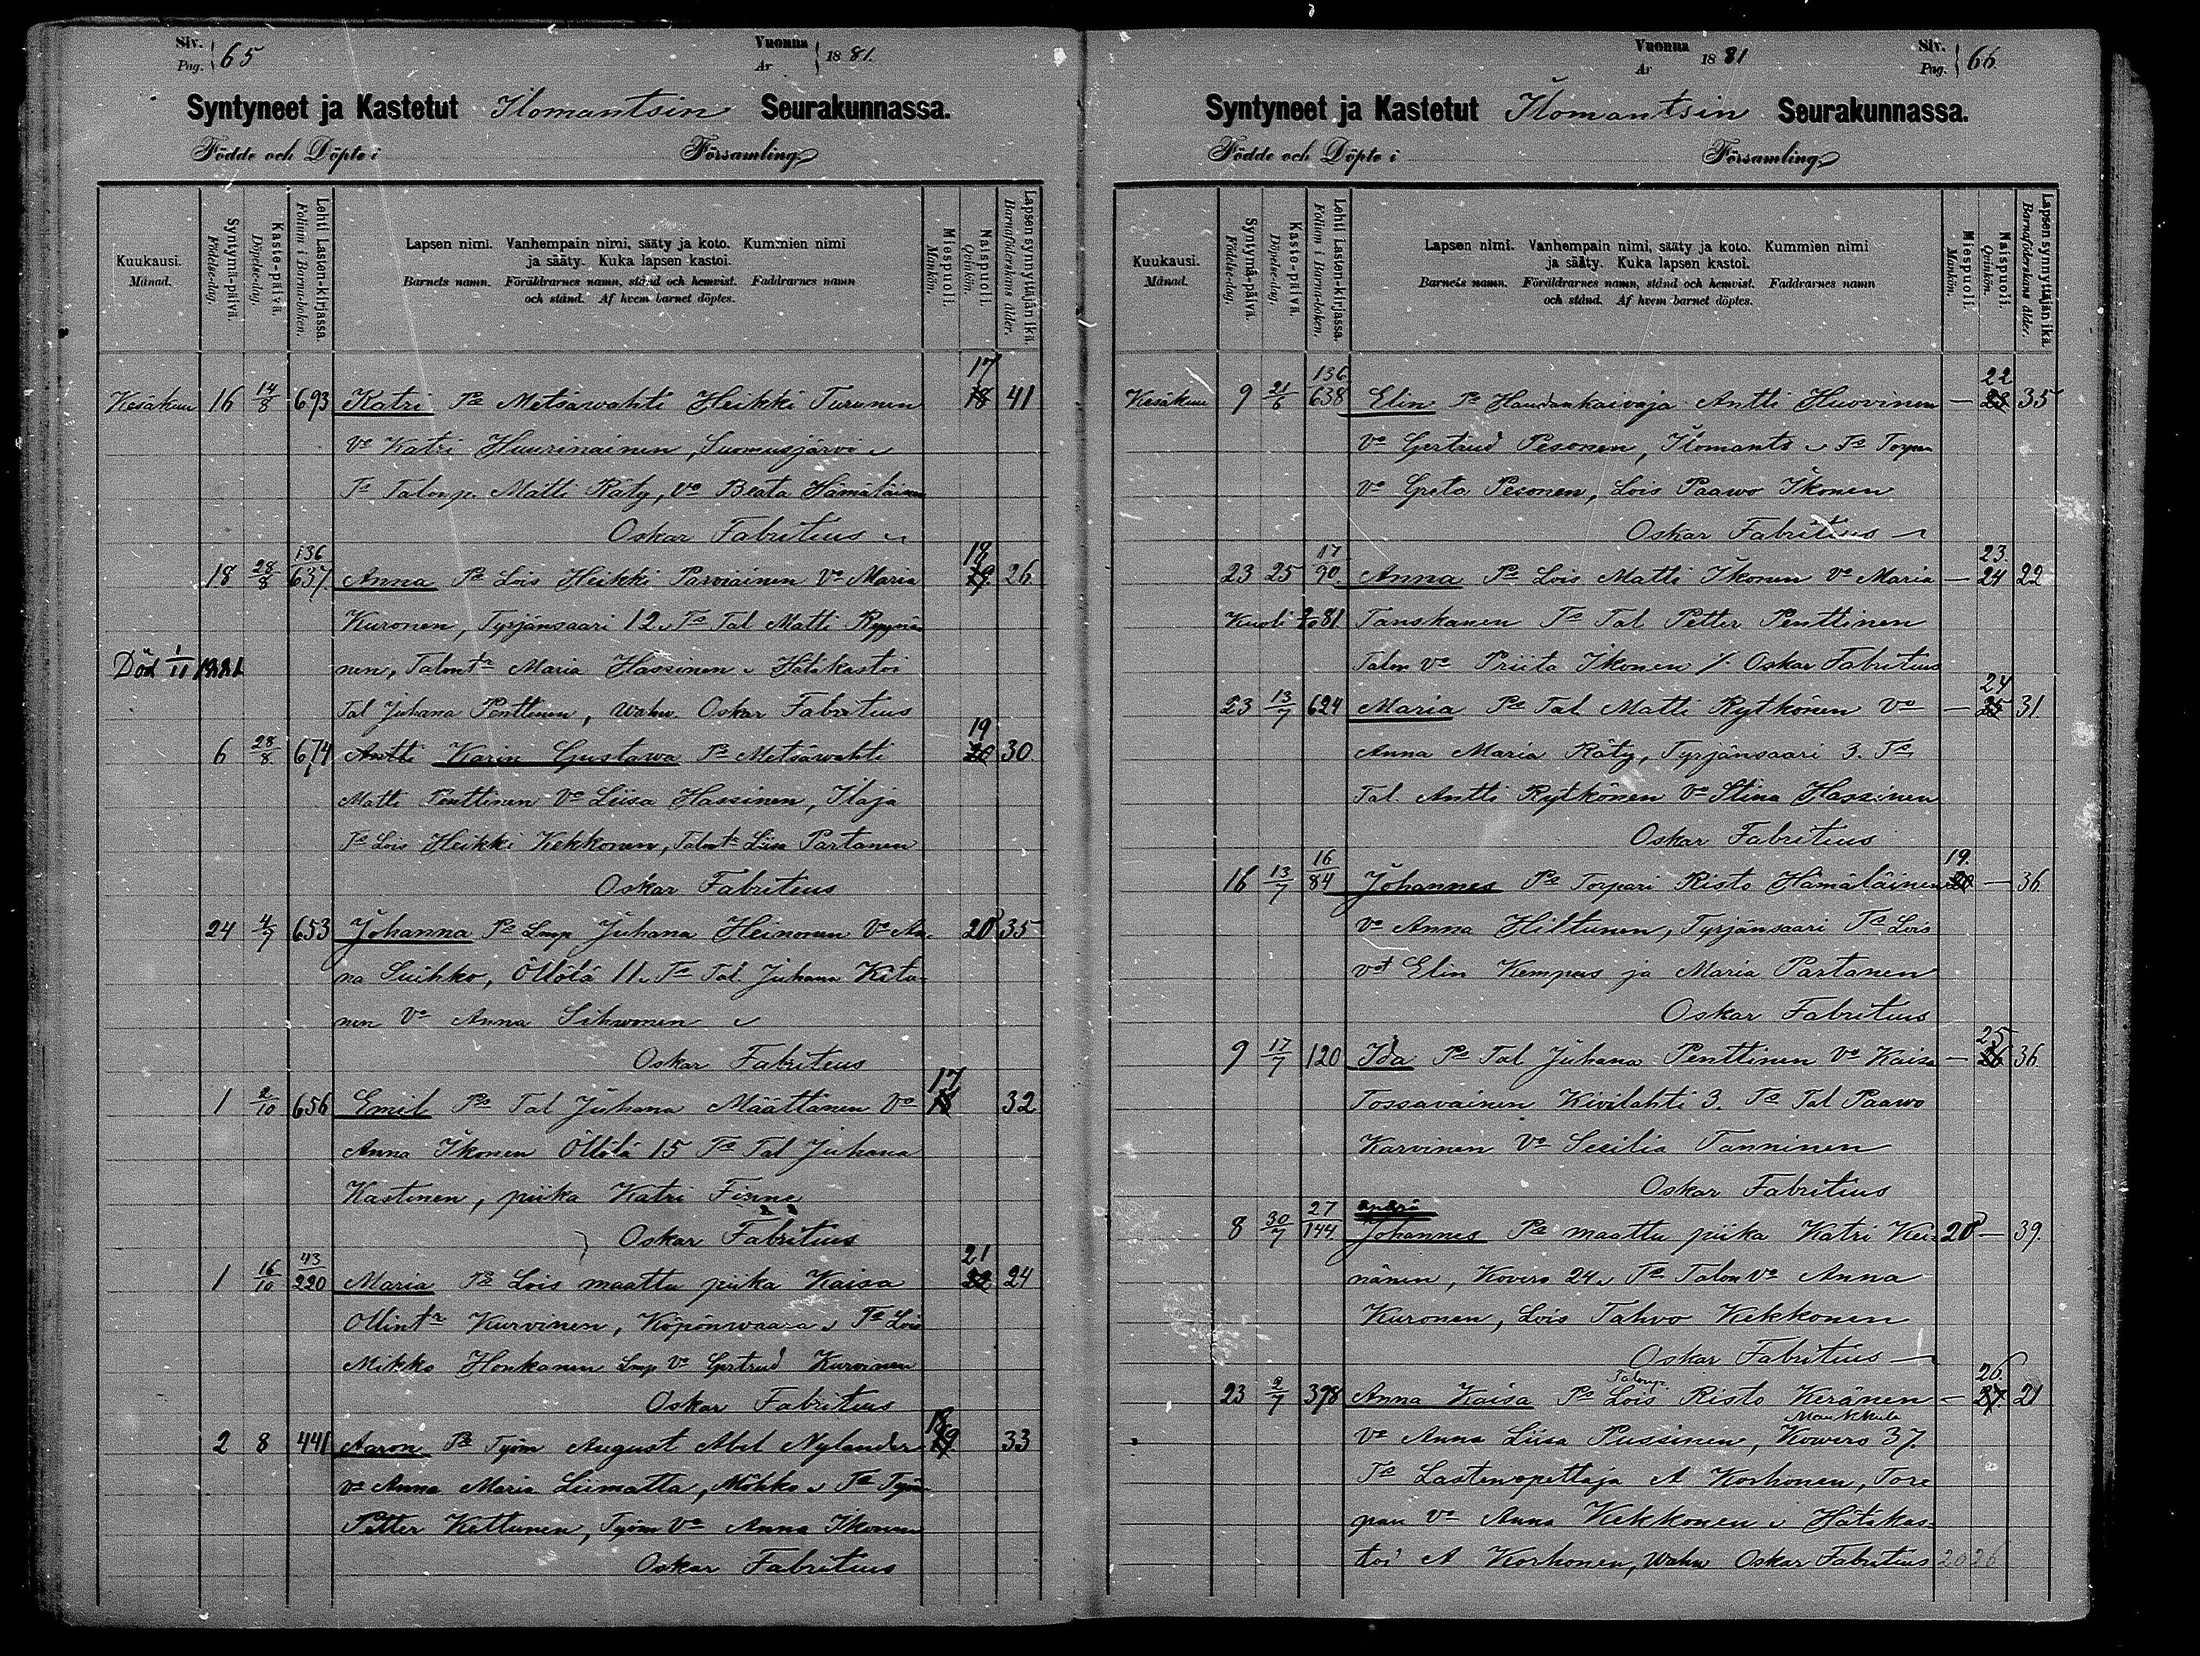 Siv. Pag. 65 Vuonna År 1881.
Syntyneet ja Kastetut Ilomantsin Seurakunnassa.
Födde och Döpte i Församling
Kuukausi. Månad.
Syntymä-päivä. Födelse-dag.
Kaste-päivä. Döpelse-dag.
Lehti Lasten-kirjassa. Folium i Barna-boken.
Lapsen nimi. Vanhempain nimi, sääty ja koto. Kummien nimi
ja sääty. Kuka lapsen kastoi.
Barnets namn. Föräldrarnes namn, stånd och hemvist. Faddrarnes namn
och stånd. Af hvem barnet döptes.
Miespuoli. Mankön.
Naispuoli. Qvinkön.
Lapsen synnyttäjän ikä. Barnaföderskans ålder.
Kesäkuu 16 14/8 693 Katri Ps Metsäwahti Heikki Turunen 17 18 41
Vo Katri Huurinainen, Suomusjärvi
Ts Talonp. Matti Räty, Vo Beata Hämäläinen
Oskar Fabritius
18 28/8 136 637 Anna Ps Lois Heikki Parviainen Vo Maria 18 19 26
Kuronen, Tyrjänsaari 12 Ts Tal Matti Ryynä
Död 1/11 1881 nen, Talontr Maria Hassinen Hätäkastoi
Tal Juhana Penttinen, wahv. Oskar Fabritius
6 28/8 674 Antti Karin Gustawa Ps Metsäwahti 19 20 30
Matti Penttinen Vo Liisa Hassinen, Ilaja
Ts Lois Heikki Kekkonen, Talontr Liisa Partanen
Oskar Fabritius
24 4/7 653 Johanna Ps Lmp Juhana Heinonen Vo An- 20 35
na Suihko, Öllölä 11 Ts Tal. Juhana Kita-
nen Vo Anna Sihvonen
Oskar Fabritius
1 2/10 656 Emil Ps Tal Juhana Määttänen Vo 17 18 32
Anna Ikonen Öllölä 15 Ts Tal Juhana
Kastinen, piika Katri Finne
Oskar Fabritius
1 16/10 43/220 Maria Ps Lois maattu piika Kaisa 21 22 24
Ollintr Kurvinen, Köpönwaara Ts Lois
Mikko Honkanen Lmp Vo Gertrud Kurvinen
Oskar Fabritius
2 8 441 Aaron Ps Työm August Abel Nylander 18 19 33
Vo Anna Maria Liimatta, Möhkö Ts Työm
Petter Kettunen, Työm Vo Anna Ikonen
Oskar Fabritius
Vuonna År 1881 Siv. Pag. 66.
Syntyneet ja Kastetut Ilomantsin Seurakunnassa.
Födde och Döpte i Församling
Kuukausi. Månad.
Syntymä-päivä. Födelse-dag.
Kaste-päivä. Döpelse-dag.
Lehti Lasten-kirjassa. Folium i Barna-boken.
Lapsen nimi. Vanhempain nimi, sääty ja koto. Kummien nimi
ja sääty. Kuka lapsen kastoi.
Barnets namn. Föräldrarnes namn, stånd och hemvist. Faddrarnes namn
och stånd. Af hvem barnet döptes.
Miespuoli. Mankön.
Naispuoli. Qvinkön.
Lapsen synnyttäjän ikä. Barnaföderskans ålder.
Kesäkuu 9 21/6 136 638 Elin Ps Haudankaivaja Antti Huovinen — 22 23 35
Vo Gertrud Pesonen, Ilomants Ts Torpan
Vo Greta Pesonen, Lois Paawo Ikonen
Oskar Fabritius
23 25 17/90 Anna Ps Lois Matti Ikonen Vo Maria — 23. 24 22
Kuoli 81 Tanskanen Ts Tal Petter Penttinen
Talon Vo Priita Ikonen /. Oskar Fabritius
23 13/7 624 Maria Ps Tal. Matti Rytkönen Vo — 24 25 31
Anna Maria Räty, Tyrjänsaari 3. Ts
Tal. Antti Rytkönen Vo Stina Hassinen
Oskar Fabritius
16 13/7 16/84 Johannes Ps Torpari Risto Hämäläinen 19. 20 — 36
Vo Anna Hiltunen, Tyrjänsaari Ts Lois
vot Elin Kempas ja Maria Partanen
Oskar Fabritius
9 17/7 120 Ida Ps Tal Juhana Penttinen Vo Kaisa — 25 26 36
Tossavainen Kivilahti 3. Ts Tal Paawo
Karvinen Vo Sesilia Tanninen
Oskar Fabritius
8 30/7 27/144 Johannes Ps maattu piika Katri Kei- 20 — 39
nänen, Kovero 24 Ts Talon Vo Anna
Kuronen, Lois Tahvo Kekkonen
Oskar Fabritius
23 2/7 398 Anna Kaisa Ps Talonp. Lois Risto Keränen — 26. 27. 21
Vo Anna Liisa Pussinen, Kowero 37.
Ts Lastenopettaja A Korhonen, Tor-
pan Vo Anna Kekkonen Hätäkas-
toi A Korhonen, Wahv Oskar Fabritius 20 26